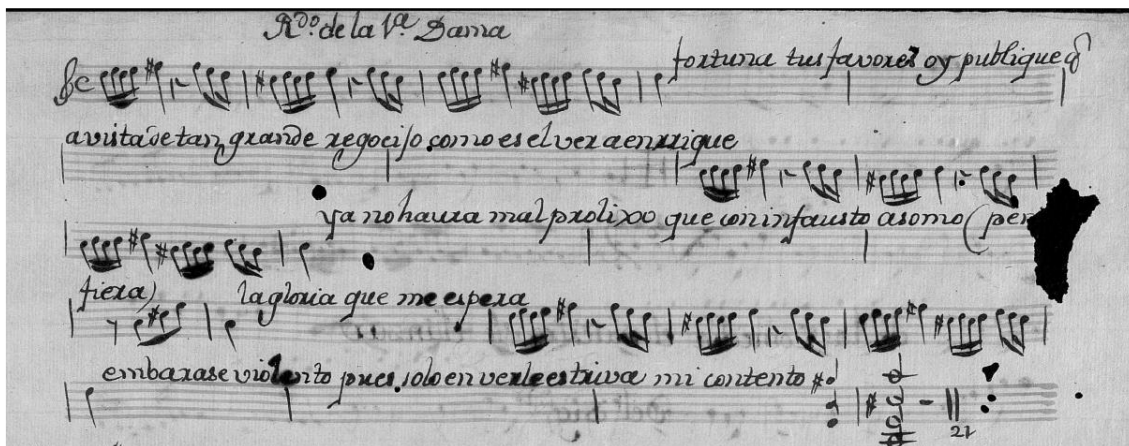 R.do de la 1.a Dama
fortuna tus favores oy publique q
a vista de tan grande regocijo como es el ver a enrrique
ya no haura mal prolixo que con infausto asomo (per
fiera) la gloria que me espera
embarase violento pues solo en verle estriva mi contento
21